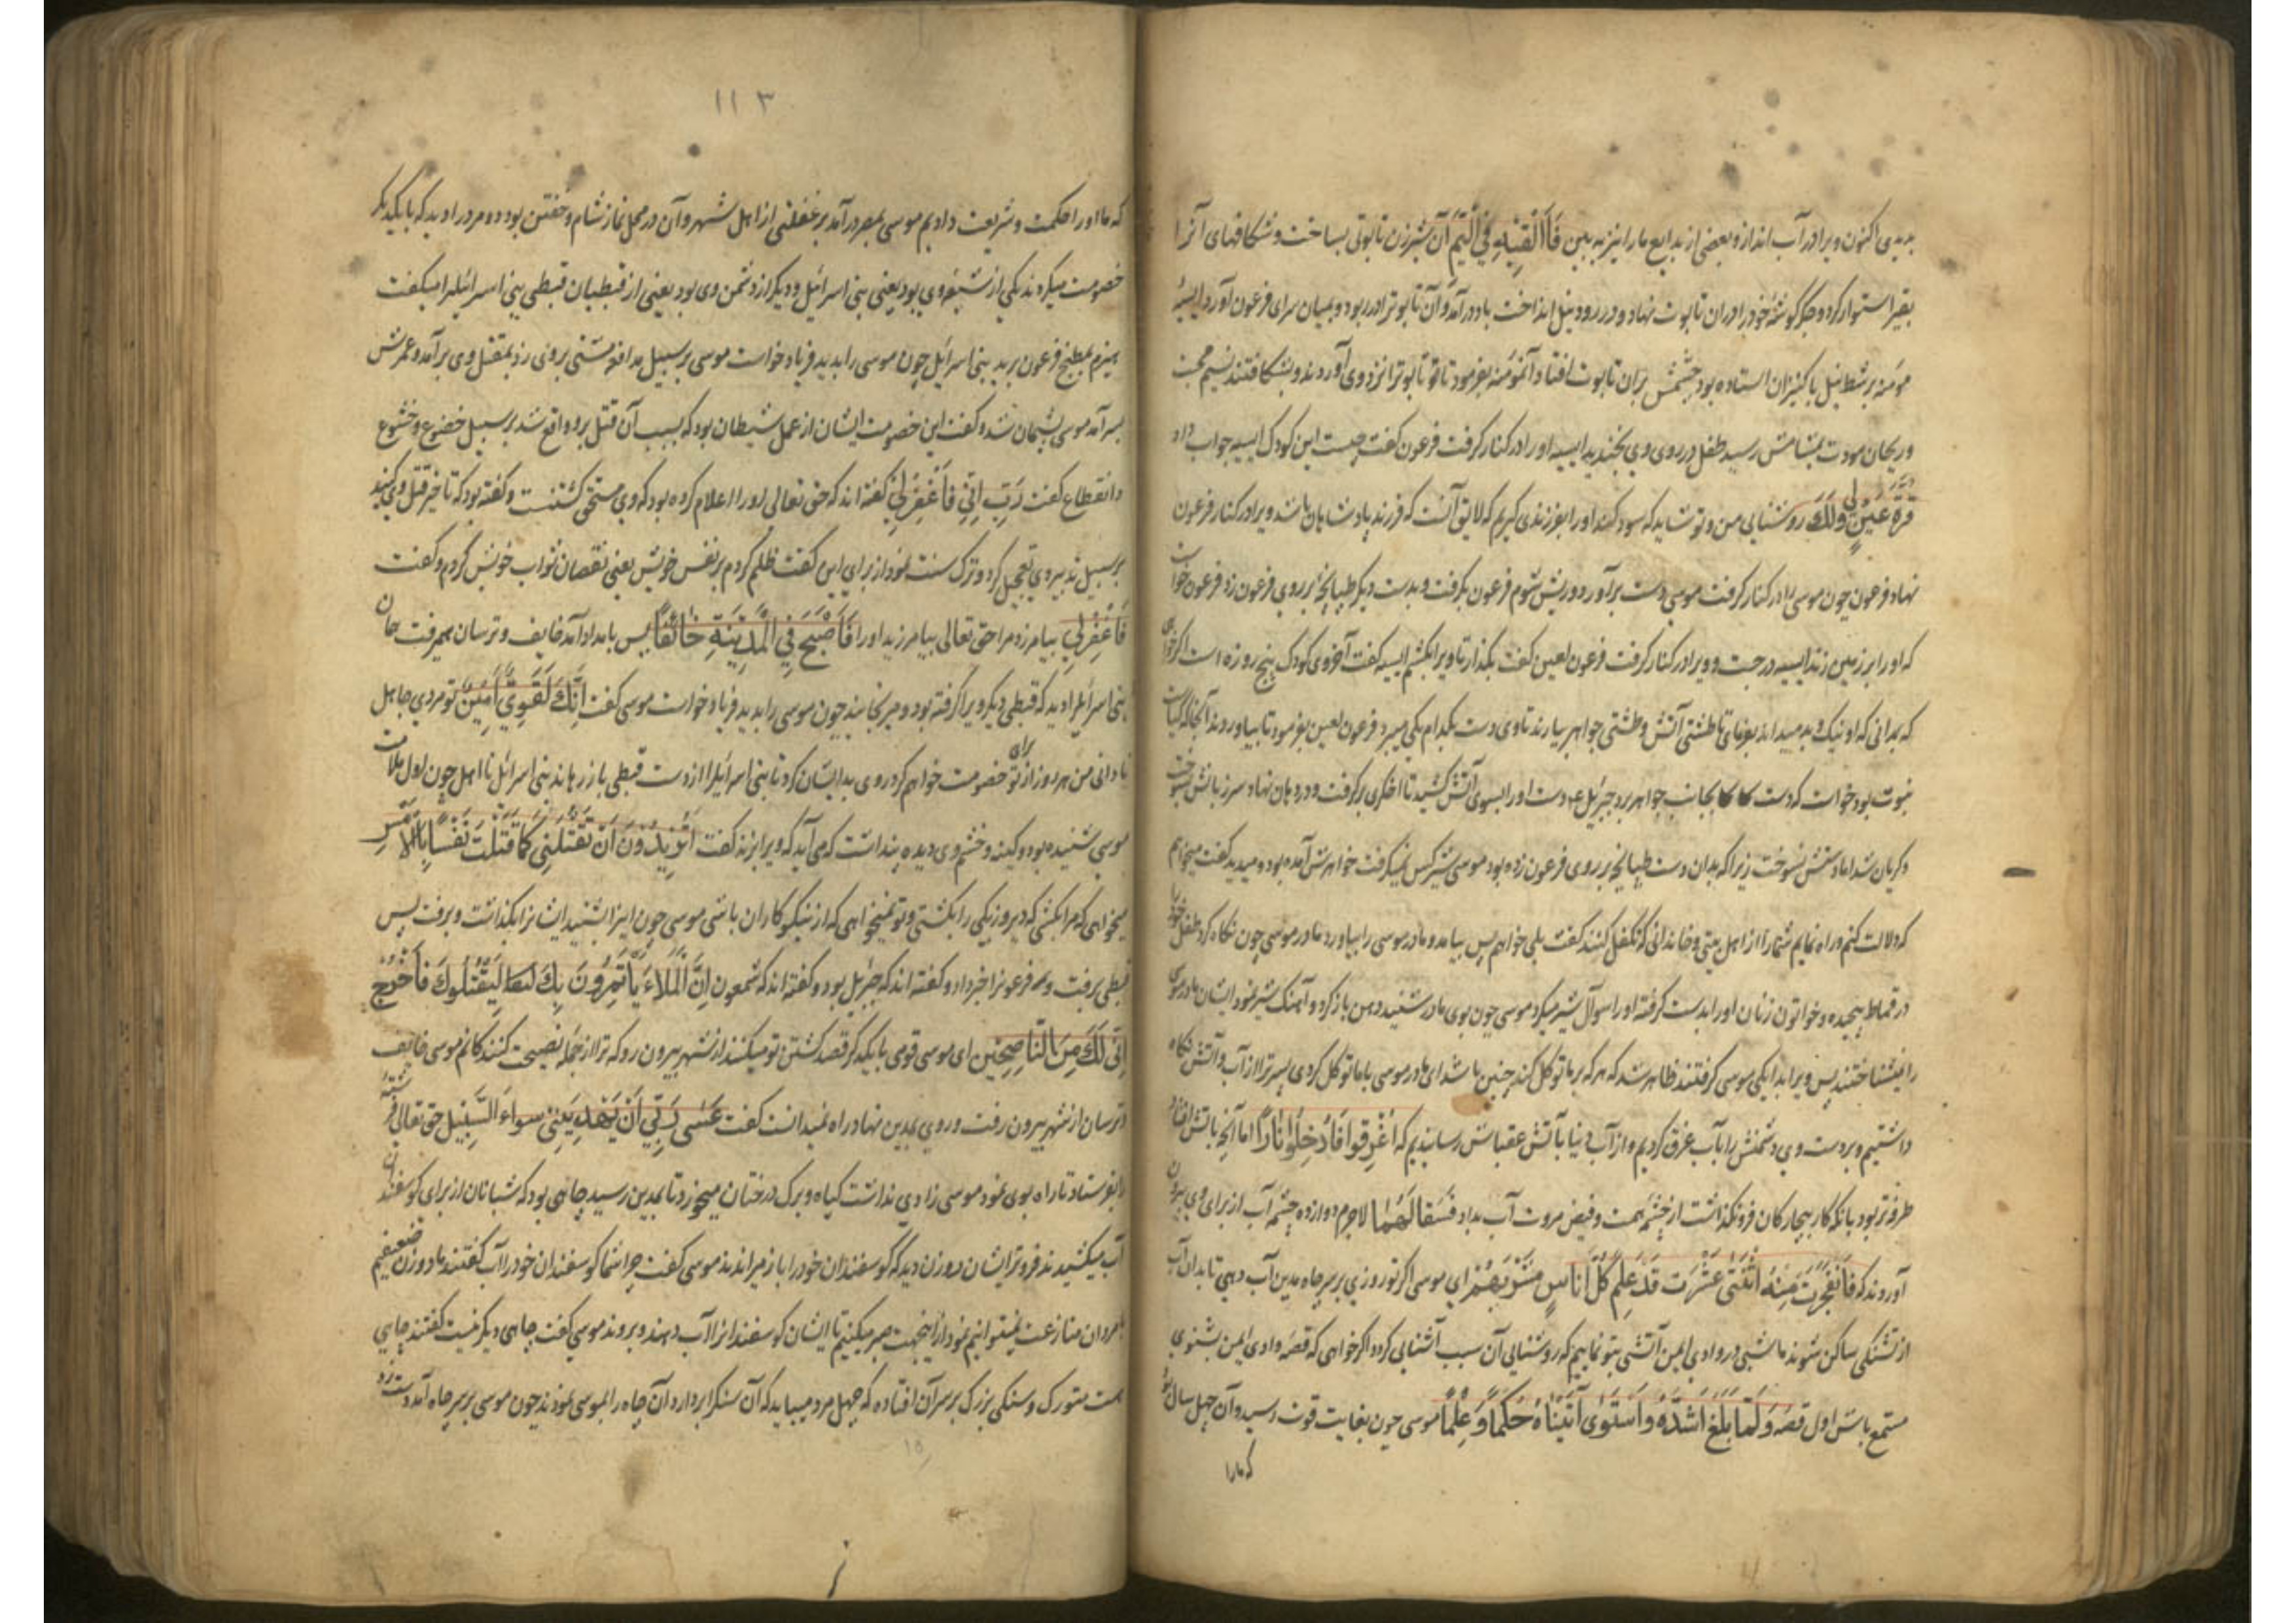 بدیدی اکنون ویرا در آب انداز و بعضی از بدایع ما را نیز به بین فَاَلْقِیْهِ فِی الْیَمِّ آن شیرزن تابوتی بساخت و شکافهای آنرا
بقیر استوار کرد و جگرگوشهٔ خود را در ان تابوت نهاد و در رود نیل انداخت باد درآمد و آن تابوترا در ربود و بمیان سرای فرعون آورد ایسیهٔ
مؤمنه بر شط نیل با کنیزان استاده بود چشمش بر ان تابوت افتاد آنمؤمنه بفرمود تا تابوترا نزد وی آوردند و بشکافتند نسیم محبت
و ریحان مودت بمشامش رسید طفل در روی وی بخندید ایسیه او را در کنار گرفت فرعون گفت چیست این کودک ایسیه جواب داد
قُرَّةُ عَیْنٍ لی وَلَكَ روشنایی من و تو شاید که سود کند او را بفرزندی گیریم که لایق آنست که فرزند پادشاهان باشد ویرا در کنار فرعون
نهاد فرعون چون موسی را در کنار گرفت موسی دست برآورد و ریش شوم فرعون بگرفت و بدست دیگر طپانچه بر روی فرعون زد فرعون خواست
که او را بر زمین زند ایسیه درجست و ویرا در کنار گرفت فرعون لعین گفت بگذار تا ویرا بکشم ایسیه گفت آخر وی کودک پنج روزه است اگر خواهی
که بدانی که او نیک و بد میداند بفرمای تا طشتی آتش و طشتی جواهر بیارند تا وی دست بکدام یکی میبرد فرعون لعین بفرمود تا بیاوردند آنجا که کیاست
نبوت بود خواست که دست بجانب جواهر برد جبرئیل ع دست او را بسوی آتش کشید تا اخگری برگرفت و در دهان نهاد سر زبانش بسوخت
و گریان شد اما دستش نسوخت زیرا که بدان دست طپانچه بر روی فرعون زده بود موسی شیر کس نمیگرفت خواهرش آمده بود و میدید گفت میخواهم
که دلالت کنم و راه نمایم شما را از اهل بیتی و خاندانی که تکفل کنند گفت بلی خواهم پس بیامد و مادر موسی را بیاورد مادر موسی چون نگاه کرد طفل خود را
در قماط پیچیده و خواتون زنان او را بدست گرفته او را سوآل شیر میکرد موسی چون بوی مادر شنید دهن باز کرد و آهنگ شیر نمود ایشان مادر موسی
را نیشناختند پس ویرا بدایگی موسی گرفتند ظاهر شد که هر که بر ما توکل کند چنین باشد ای مادر موسی با ما توکل کردی پسر ترا از آب و آتش نگاه
داشتیم و بر دست وی دشمنش را بآب غرق کردیم و از آب دنیا بآتش عقباش رسانیدیم که اُغْرِقُوا فَاُدْخِلُوا نَاراً اما آنچه بآتش افتاد
طرفه‌تر بود بانکه کار بیچارگان فرونگذاشت از چشمهٔ همت و فیض مروت آب بداد فَسَقَا لَهُمَا لاجرم دوازده چشمه آب از برای وی بیرون
آوردند که فَانْفَجَرَتْ مِنْهُ اثْنَتَیْ عَشْرَت قَدْ عَلِمَ کُلُّ اُنَاسٍ مَشْرَبَهُمْ ای موسی اگر تو روزی بر سر چاه مدین آب دهی تا بدان آب
از تشنگی ساکن شوند ما شبی در وادی ایمن آتشی بتو نماییم که روشنایی آن سبب آشنایی گردد اگر خواهی که قصهٔ وادی ایمن بشنوی
مستمع باش اول قصه وَلَمَّا بَلَغَ اَشُدَّهُ وَاسْتَوٰی اٰتَیْنَاهُ حُکْمًا وَعِلْمًا موسی چون بغایت قوت رسید و آن چهل سال بود
که ما را
۱۱۳
که ما او را حکمت و شریعت دادیم موسی بمصر درآمد بر غفلتی از اهل شهر و آن در محل نماز شام و خفتن بود دو مرد را دید که با یکدیگر
خصومت میکردند یکی از شیعهٔ وی بود یعنی بنی اسرائیل و دیگر از دشمن وی بود یعنی از قبطیان قبطی بنی اسرائیلرا میگفت
هیزم بمطبخ فرعون بر بنی اسرائیل چون موسی را بدید فریاد خواست موسی بر سبیل مدافعه مشتی بر وی زد بمقتل وی برآمد و عمرش
بسر آمد موسی پشیمان شد و گفت این خصومت ایشان از عمل شیطان بود که بسبب آن قتل بر او واقع شد بر سبیل خضوع و خشوع
و انقطاع گفت رَبِّ اِنّی فَاغْفِرْلِی گفته‌اند که حق تعالی او را اعلام کرده بود که وی مستحق کشتنست و گفته بود که تاخیر قتل وی کنید
بر سبیل ندبه وی تعجیل کرد و ترک سنت نمود از برای این گفت ظلم کردم بر نفس خویش یعنی نقصان ثواب خویش کردم و گفت
فَاغْفِرْلِی بیامرز مرا حق تعالی بیامرزید او را فَاَصْبَحَ فِی الْمَدِینَةِ خَائِفًا پس بامداد آمد خایف و ترسان میرفت همان
بنی اسرائیلرا دید که قبطی دیگر ویرا گرفته بود و میرنجانید چون موسی را بدید فریاد خواست موسی گفت اِنَّكَ لَقَوِیٌّ اَمِینٌ تو مردی جاهل
نادانی من هر روز از برای تو خصومت خواهم کرد روی بدایشان کرد تا بنی اسرائیلرا از دست قبطی باز رهاند بنی اسرائیل نا اهل چون اول ملامت
موسی شنیده بود و کینه و خشم وی دیده پنداشت که می‌آید که ویرا بزند گفت اَتُرِیدُونَ اَنْ تَقْتُلَنِی کَمَا قَتَلْتَ نَفْسًا بِالْاَمْسِ
میخواهی که مرا بکشی که دیروز یکی را بکشتی و تو نمیخواهی که از نیکوکاران باشی موسی چون این را شنید ایشانرا بگذاشت و برفت پس
قبطی برفت و فرعونرا خبر داد و گفته‌اند که جبرئیل بود و گفته‌اند که شمعون اِنَّ الْمَلَاءَ یَأْتَمِرُونَ بِكَ لِیَقْتُلُوكَ فَاخْرُجْ
اِنّی لَكَ مِنَ النَّاصِحِینَ ای موسی قومی با یکدیگر قصد کشتن تو میکنند از شهر بیرون رو که ترا از جمله نصیحت کنندگانم موسی خایف
و ترسان از شهر بیرون رفت و روی بمدین نهاد راه نمیدانست گفت عَسٰی رَبّی اَنْ یَهْدِیَنِی سَوَاءَ السَّبِیلِ حق تعالی فرشتهٔ
را بفرستاد تا راه بوی نمود موسی زادی نداشت گیاه و برگ درختان میخورد تا بمدین رسید چاهی بود که شبانان از برای گوسفندان
آب میکشیدند فروتر ایشان دو زن دید که گوسفندان خود را باز میراندند موسی گفت چرا شما گوسفندان خود را آب گفتند ما دو زن ضعیفیم
با مردان منازعت نمیتوانیم نمود از اینجهت صبر میکنیم تا ایشان گوسفندانرا آب دهند و بروند موسی گفت چاهی دیگر نیست گفتند چاهی
هست متروک و سنگی بزرگ بر سر آن افتاده که چهل مرد میباید که آن سنگرا بردارد آن چاه را بموسی نمودند چون موسی بر سر چاه آمد دست زد